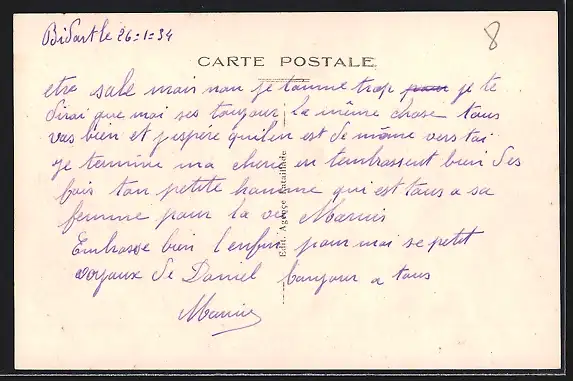 Bidart le 26-1-34
8
CARTE POSTALE
etre sale mais non je tourne trop pour je te
dirai que moi ses toujour la même chose tous
vas bien et j'espère qu'ilen est de même vers toi
je termine ma cherie en t'embrassent bien des
fois ton petite homme qui est tous a sa
femme pour la vie Marius
Embrasse bien l'enfan pour moi se petit
voyoux de Daniel bonjour a tous
Marius
Edit. Agence Bataillade